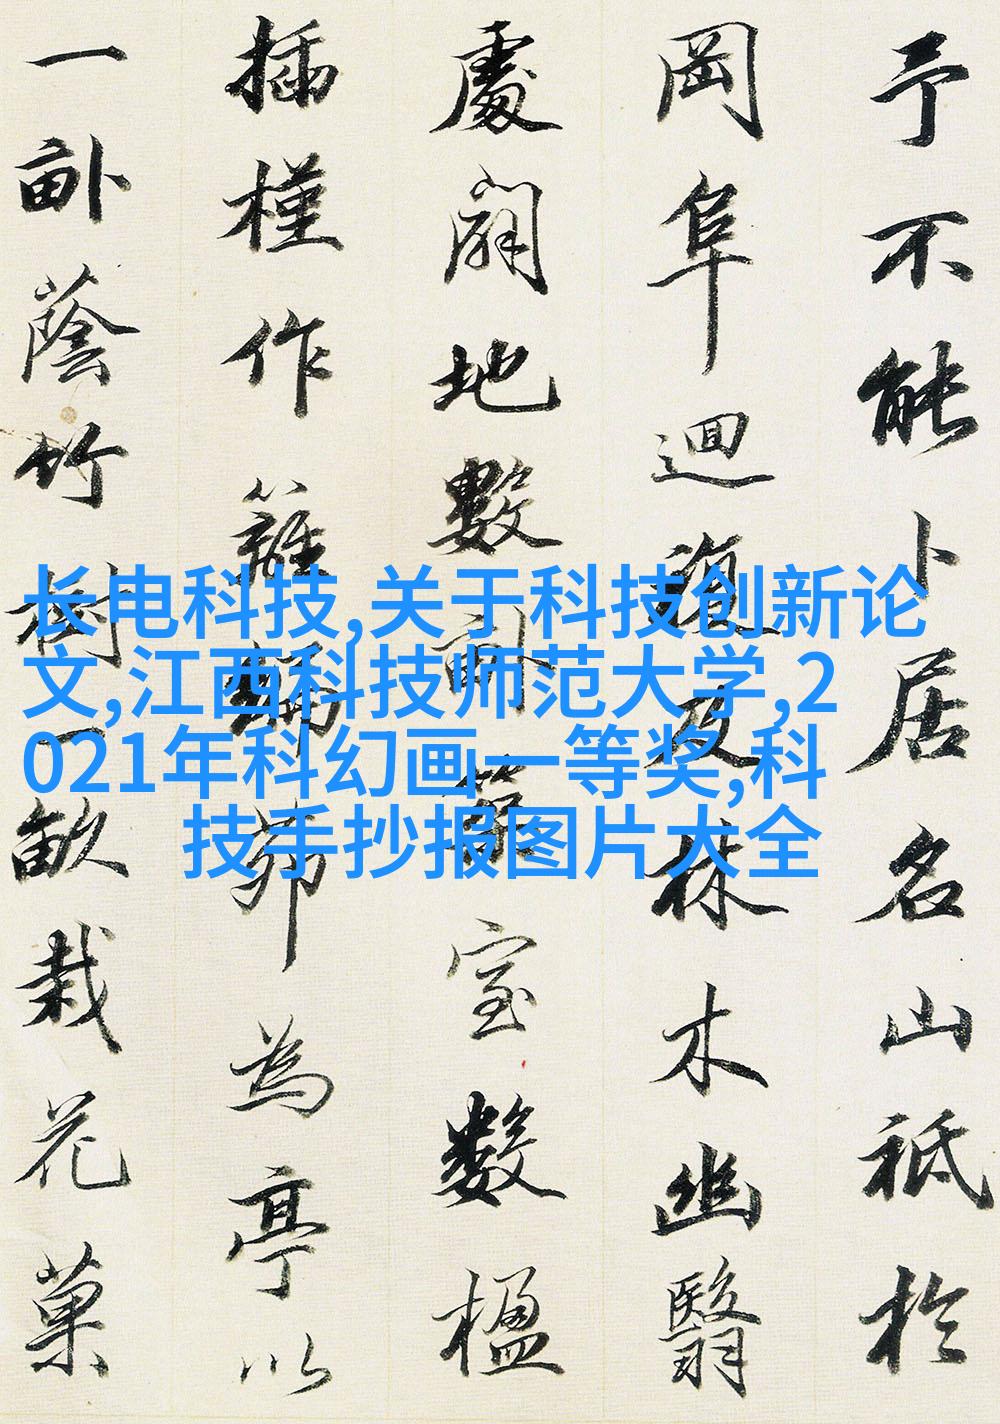 予不能卜居名山祗於
岡阜迴複及林木幽翳
處闢地數畝築室數楹
插槿作籬編茆為亭以
一畝蔭竹樹一畝栽花菓
长电科技,关于科技创新论
文,江西科技师范大学,2
021年科幻画一等奖,科
技手抄报图片大全